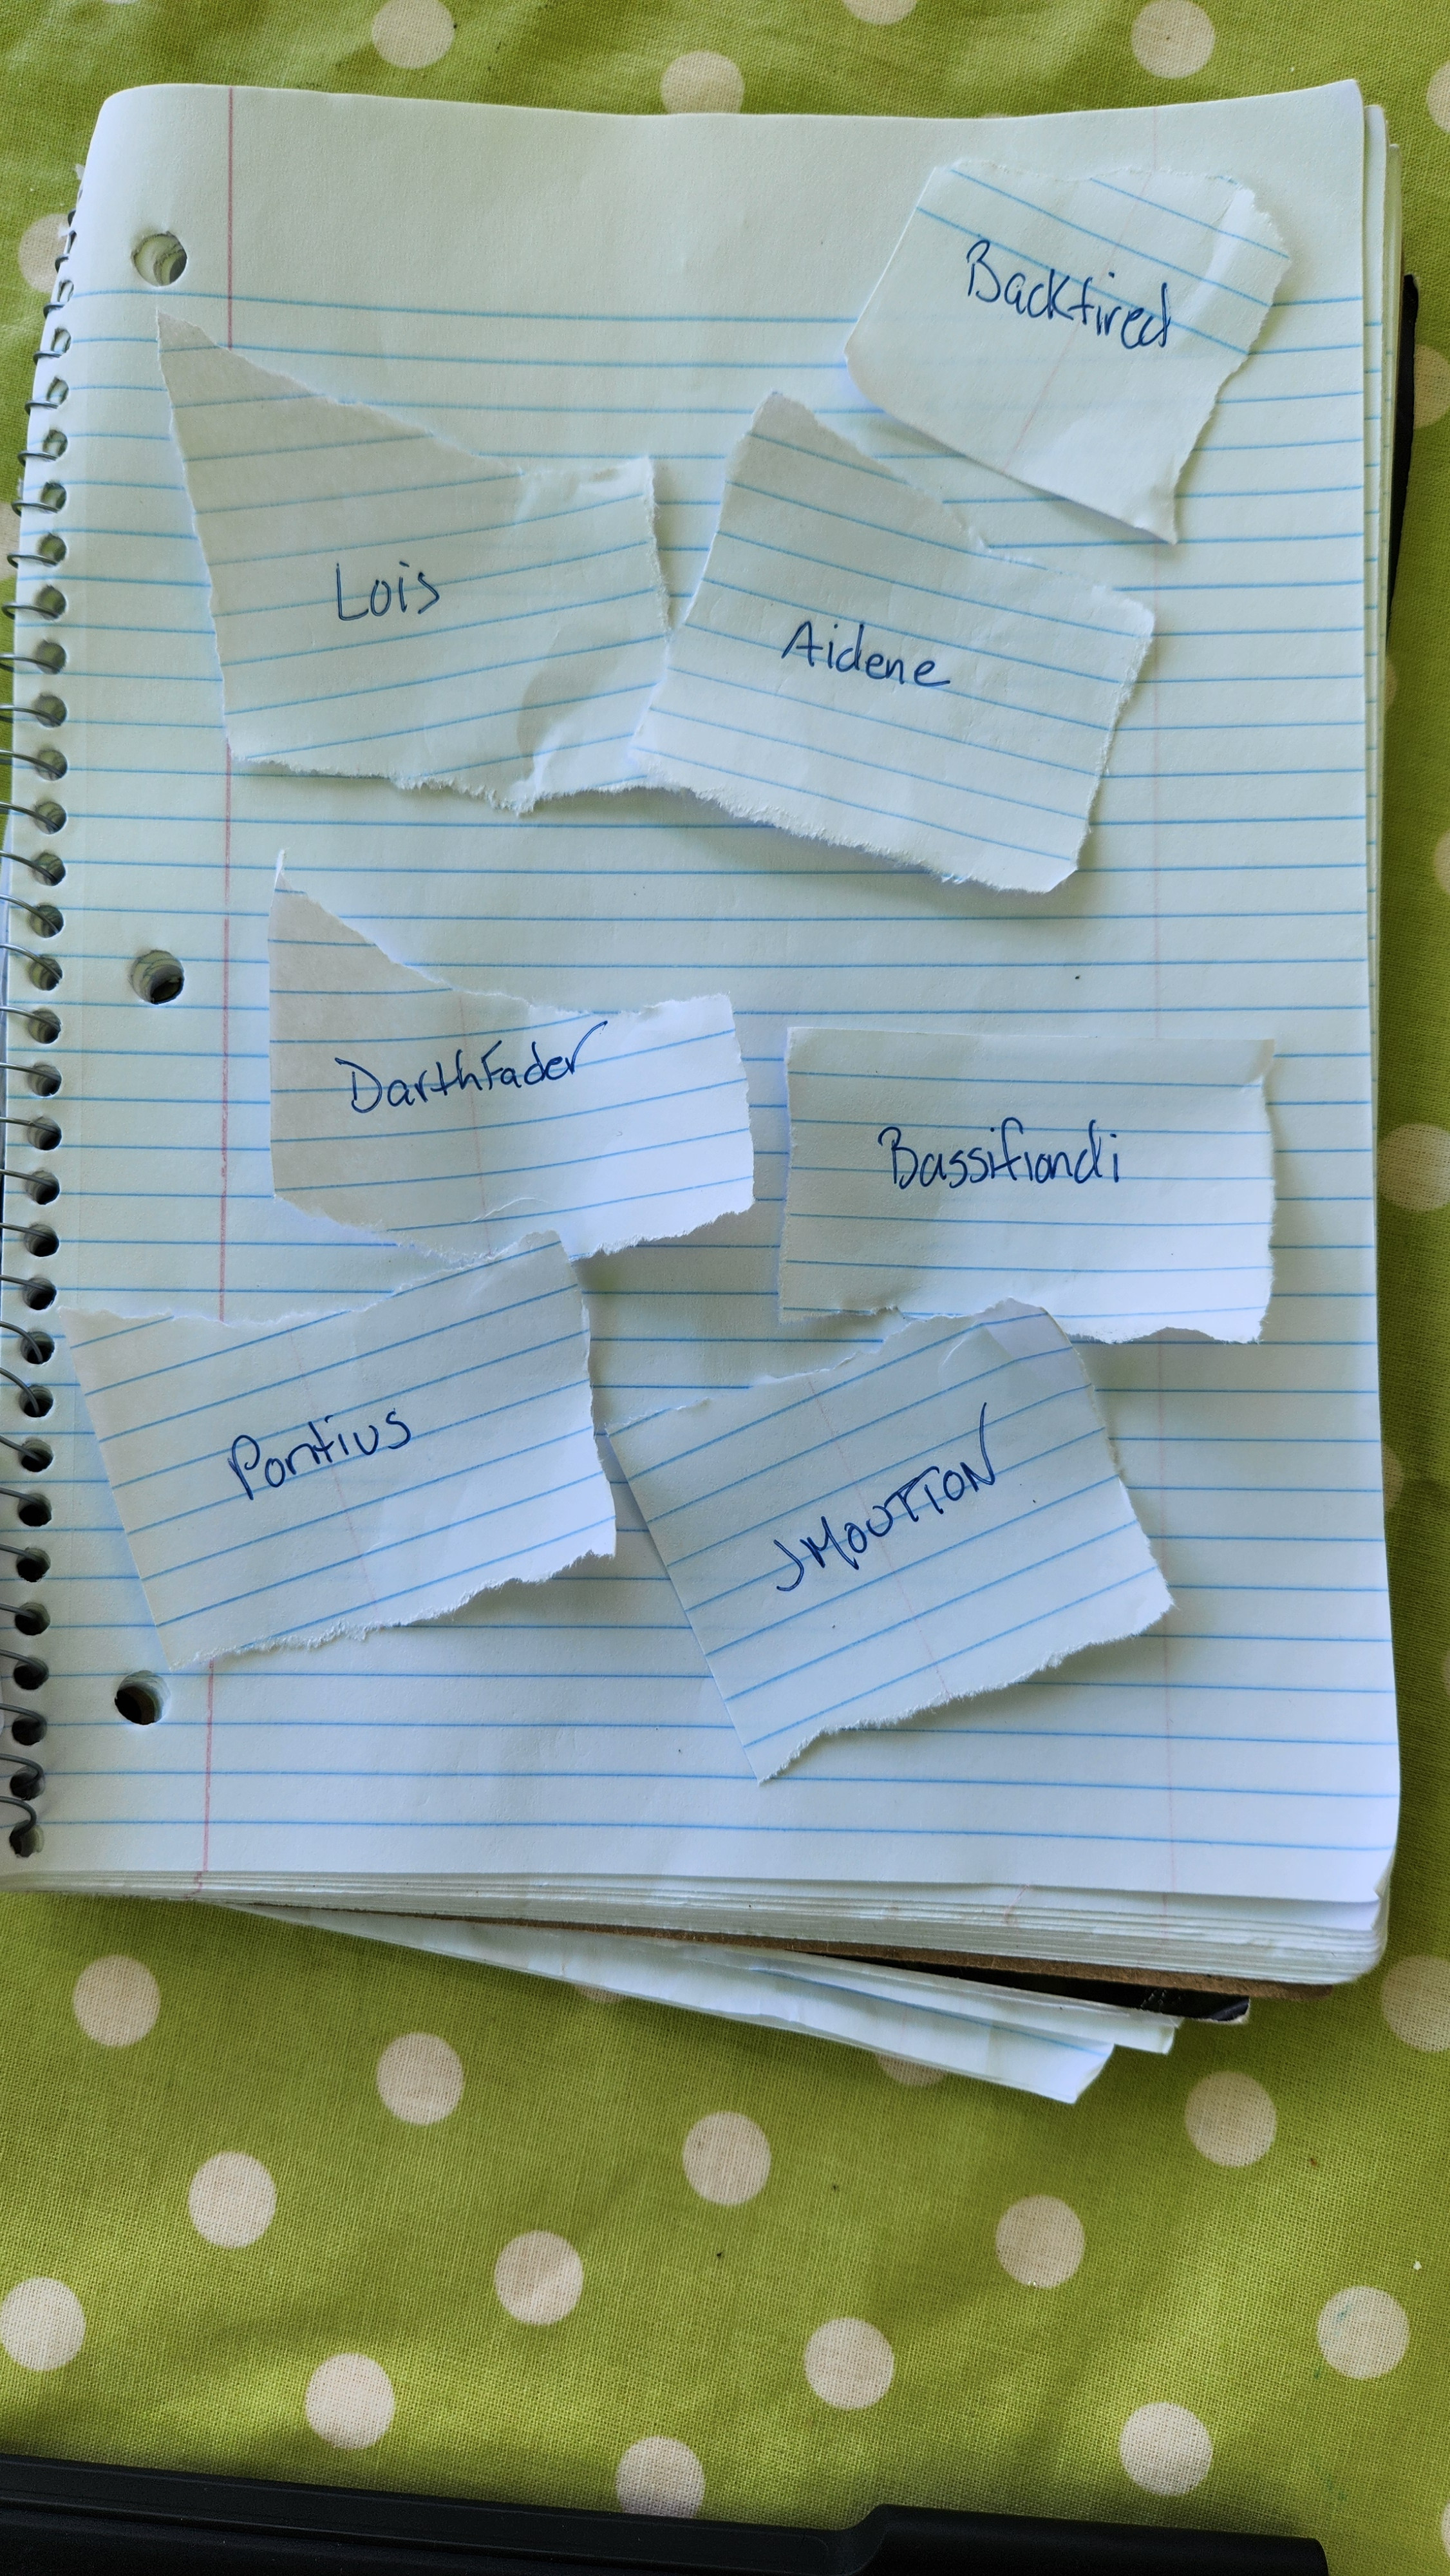 Backfired
Lois
Aidene
DarthFader
Bassifiondi
Pontius
JMOUTTON